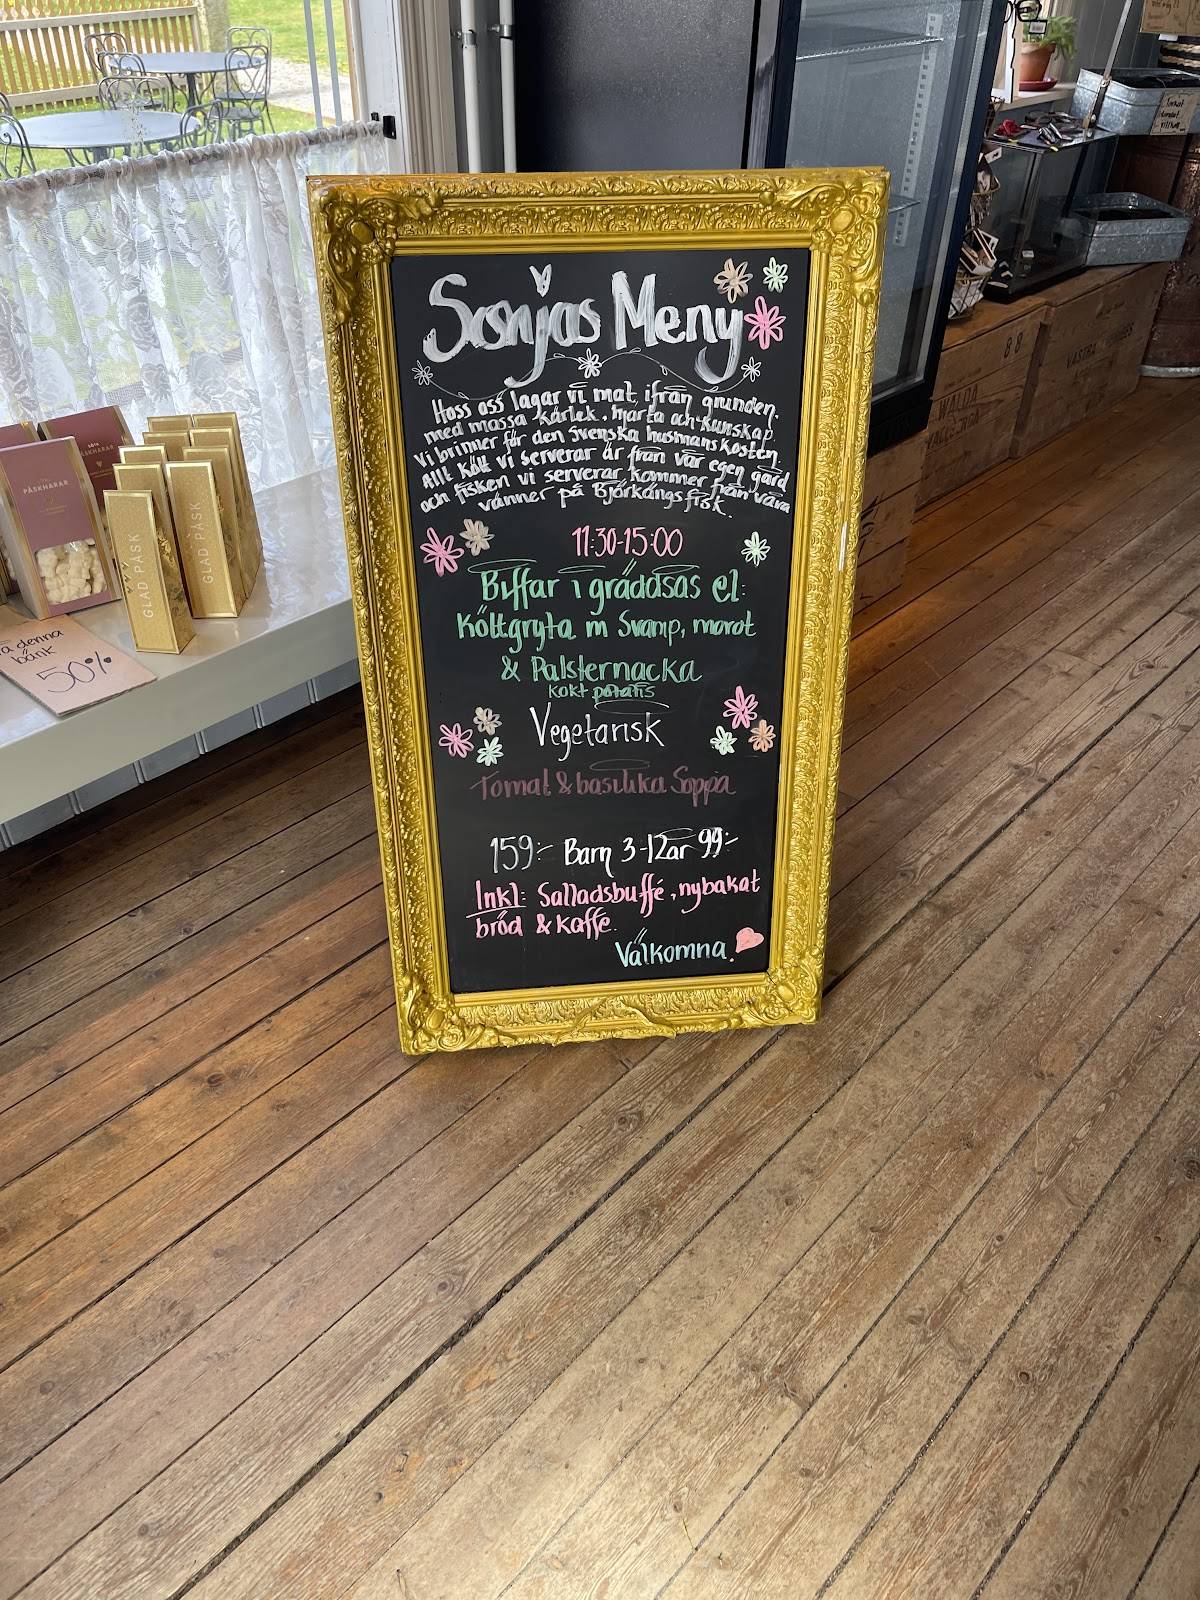 Sasnjas Meny
Hoss oss lagar vi mat ifrån grunden.
med massa kärlek, hjärta och kunskap.
Vi brinner för den svenska husmanskosten
Allt kött vi serverar är från vår egen gård
och fisken vi serverar kommer från våra
vänner på Björkängs fisk.
11:30-15:00
Biffar i gräddsås el:
Köttgryta m Svamp, morot
& Palsternacka
kokt potatis
Vegetarisk
Tomat & basilika Soppa
159:- Barn 3-12år 99:-
Inkl: Salladsbuffé, nybakat
bröd & kaffe.
Välkomna.
PÅSKHARAR
PÅSKHARAR
GLAD PÅSK
GLAD PÅSK
denna
bänk
50%
88
WALDA